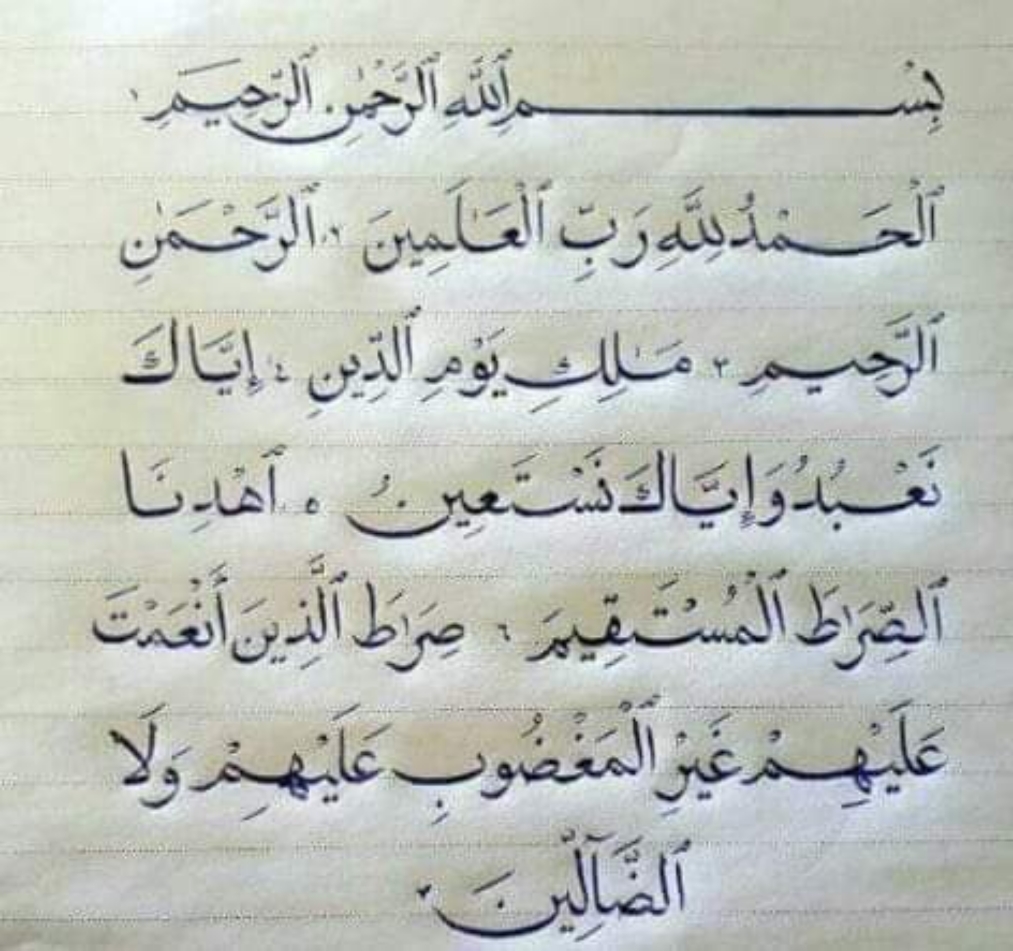 بِسْمِ ٱللَّهِ ٱلرَّحْمَٰنِ ٱلرَّحِيمِ ١
ٱلْحَمْدُ لِلَّهِ رَبِّ ٱلْعَـٰلَمِينَ ٢ ٱلرَّحْمَٰنِ
ٱلرَّحِيمِ ٣ مَـٰلِكِ يَوْمِ ٱلدِّينِ ٤ إِيَّاكَ
نَعْبُدُ وَإِيَّاكَ نَسْتَعِينُ ٥ ٱهْدِنَا
ٱلصِّرَٰطَ ٱلْمُسْتَقِيمَ ٦ صِرَٰطَ ٱلَّذِينَ أَنْعَمْتَ
عَلَيْهِمْ غَيْرِ ٱلْمَغْضُوبِ عَلَيْهِمْ وَلَا
ٱلضَّآلِّينَ